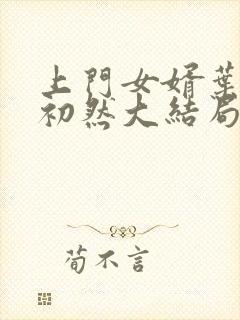 上門女婿葉
初然大結局
荀不言